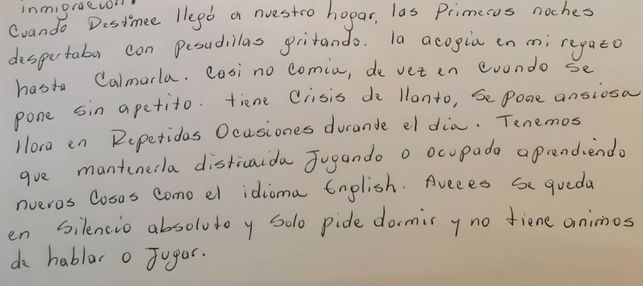 inmigración.
Cuando Destinee llegó a nuestro hogar, las Primeras noches
despertaba con pesadillas gritando. la acogia en mi regazo
hasta Calmarla. Casi no comia, de vez en cuando se
pone sin apetito. tiene Crisis de llanto, se pone ansiosa
llora en Repetidas Ocasiones durante el dia. Tenemos
que mantenerla distraida Jugando o ocupada aprendiendo
nuevas Cosas Como el idioma English. Aveces se queda
en silencio absoluto y solo pide dormir y no tiene animos
de hablar o Jugar.